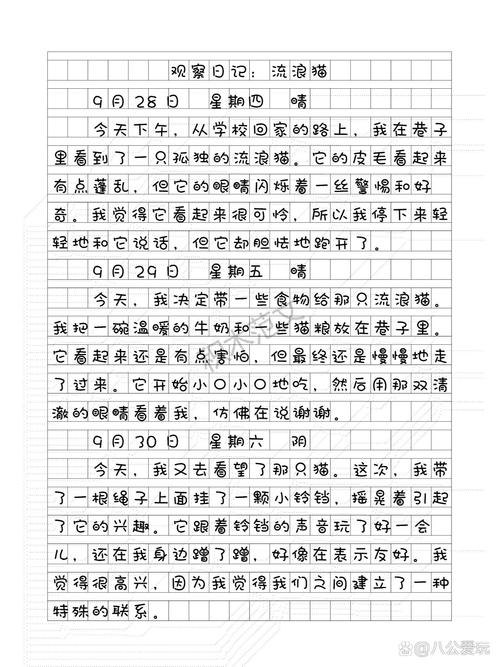 观察日记：流浪猫
9月28日 星期四 晴
今天下午，从学校回家的路上，我在巷子
里看到了一只孤独的流浪猫。它的皮毛看起来
有点蓬乱，但它的眼睛闪烁着一丝警惕和好
奇。我觉得它看起来很可怜，所以我停下来轻
轻地和它说话，但它却胆怯地跑开了。
9月29日 星期五 晴
今天，我决定带一些食物给那只流浪猫。
我把一碗温暖的牛奶和一些猫粮放在巷子里。
它看起来还是有点害怕，但最终还是慢慢地走
了过来。它开始小口小口地吃，然后用那双清
澈的眼睛看着我，仿佛在说谢谢。
9月30日 星期六 阴
今天，我又去看望了那只猫。这次，我带
了一根绳子上面挂了一颗小铃铛，摇晃着引起
了它的兴趣。它跟着铃铛的声音玩了好一会
儿，还在我身边蹭了蹭，好像在表示友好。我
觉得很高兴，因为我觉得我们之间建立了一种
特殊的联系。
积木范文
@八公爱玩